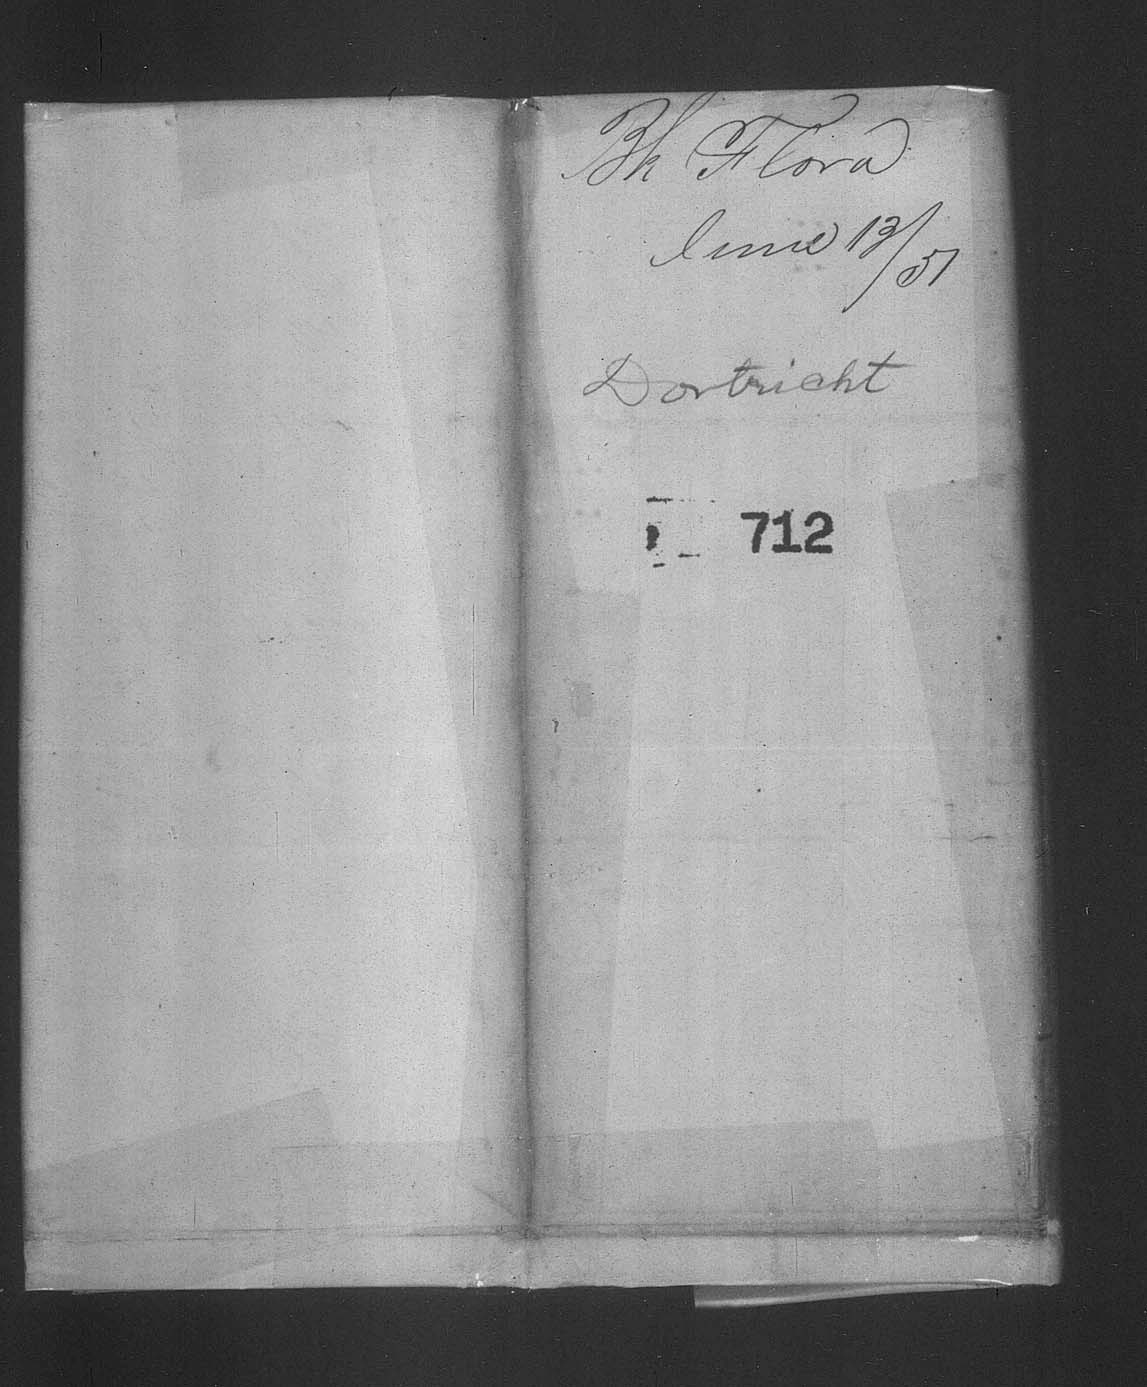 Bk Flora
June 13/51
Dortricht
712